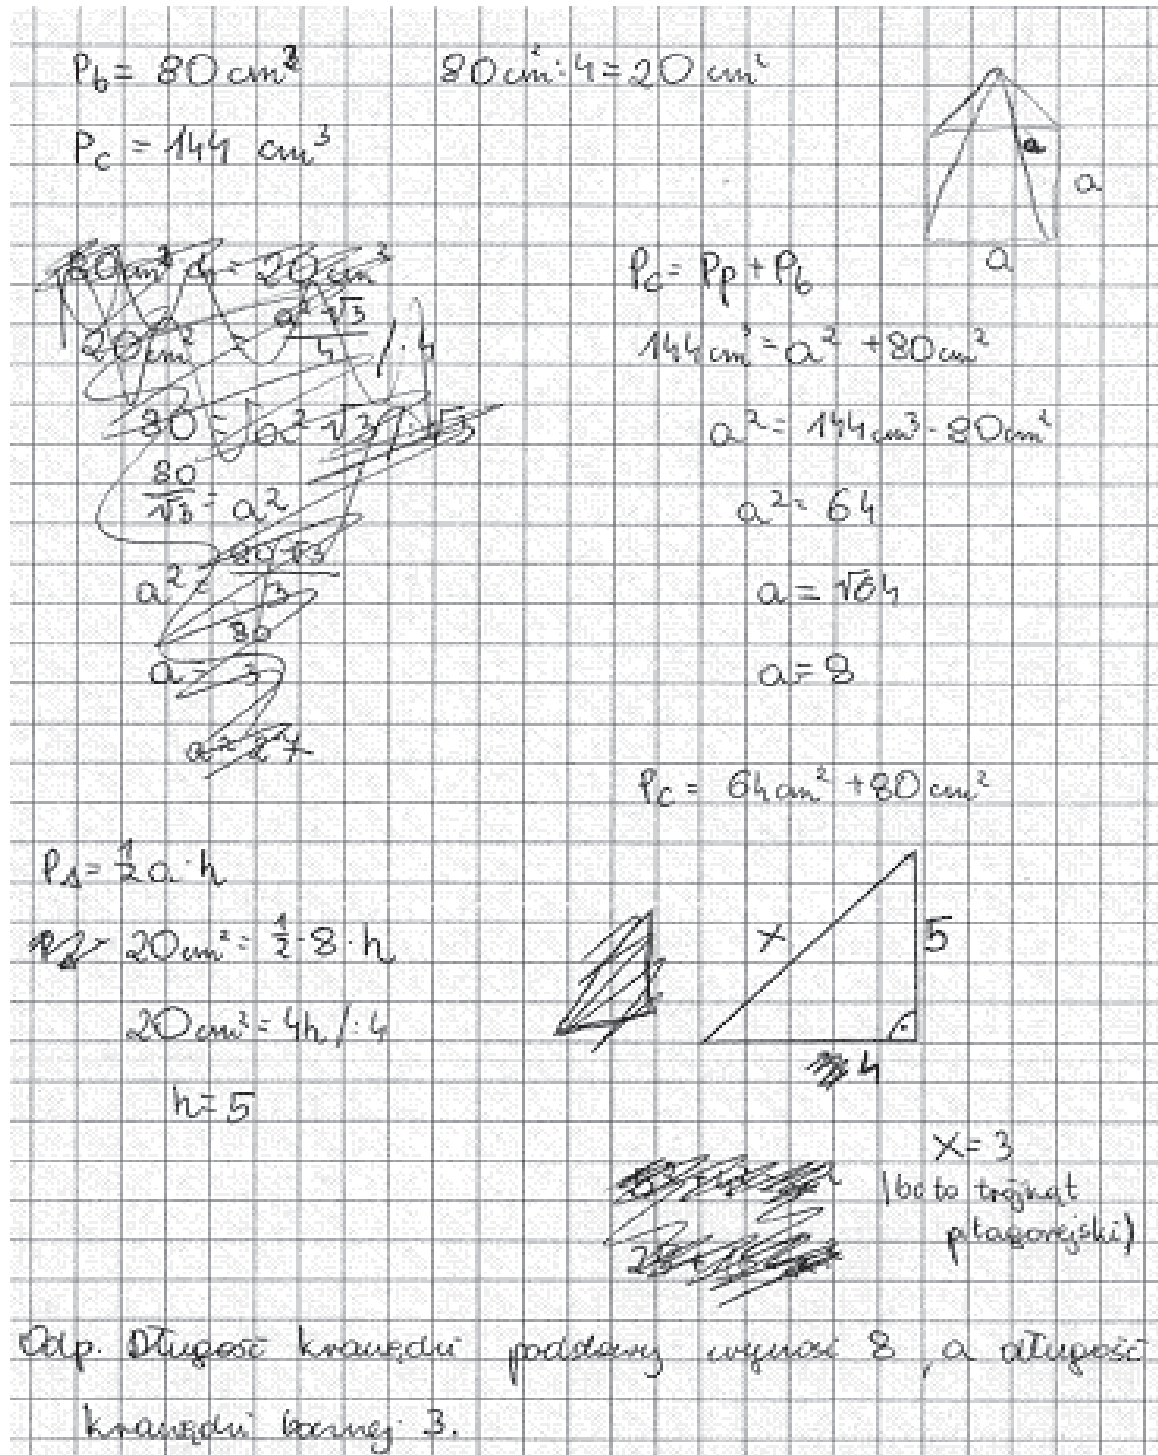 P_b = 80 cm² 80 cm² : 4 = 20 cm²
P_c = 144 cm³
a
a
a
80 cm² : 4 = 20 cm²
20 cm² = a²·√3/4 /·4
80 = a²√3 /:√3
80/√3 = a²
a² = 80·√3/3
a = 80/3
a = 27
P_c = P_p + P_b
144 cm³ = a² + 80 cm²
a² = 144 cm³ - 80 cm²
a² = 64
a = √64
a = 8
P_c = 64 cm² + 80 cm²
P_Δ = ½ a · h
20 cm² = ½ · 8 · h
20 cm² = 4h / : 4
h = 5
x
5
4
x = 3
(bo to trójkąt
pitagorejski)
Odp. Długość krawędzi podstawy wynosi 8, a długość
krawędzi bocznej 3.